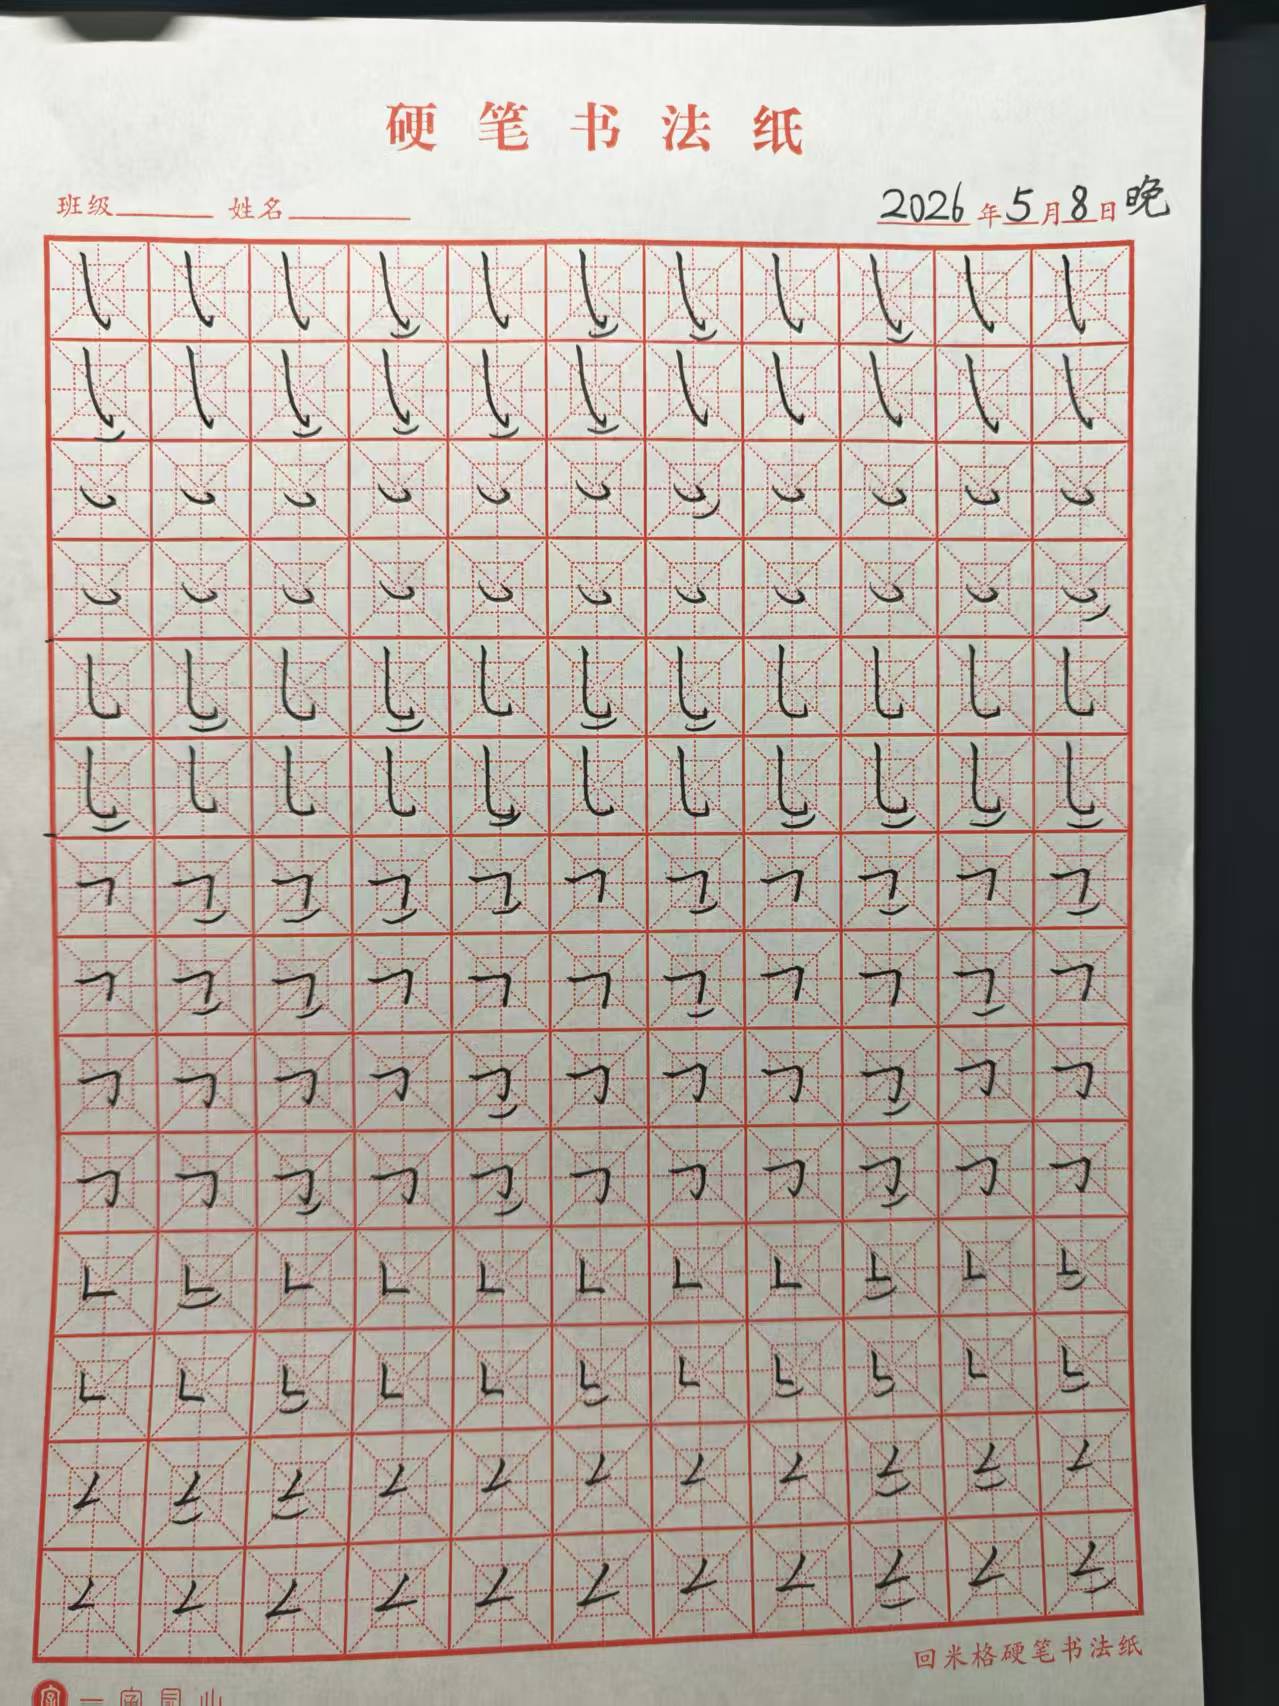 硬笔书法纸
班级 姓名 2026年5月8日晚
回米格硬笔书法纸